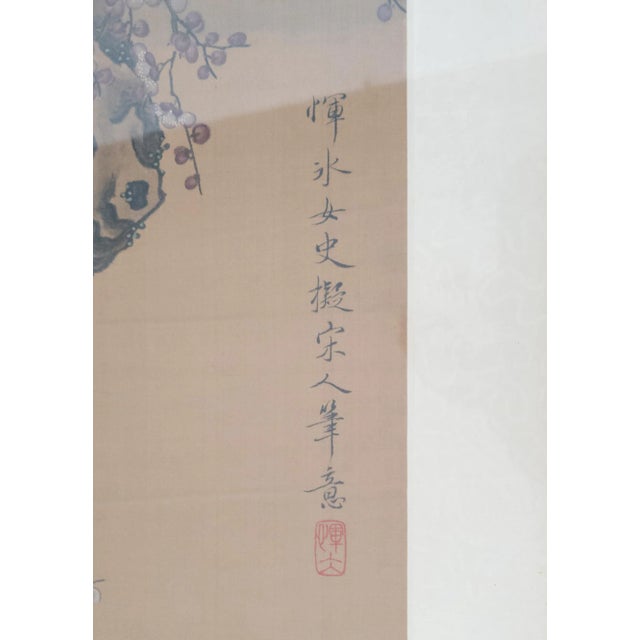 惲冰女史擬宋人筆意